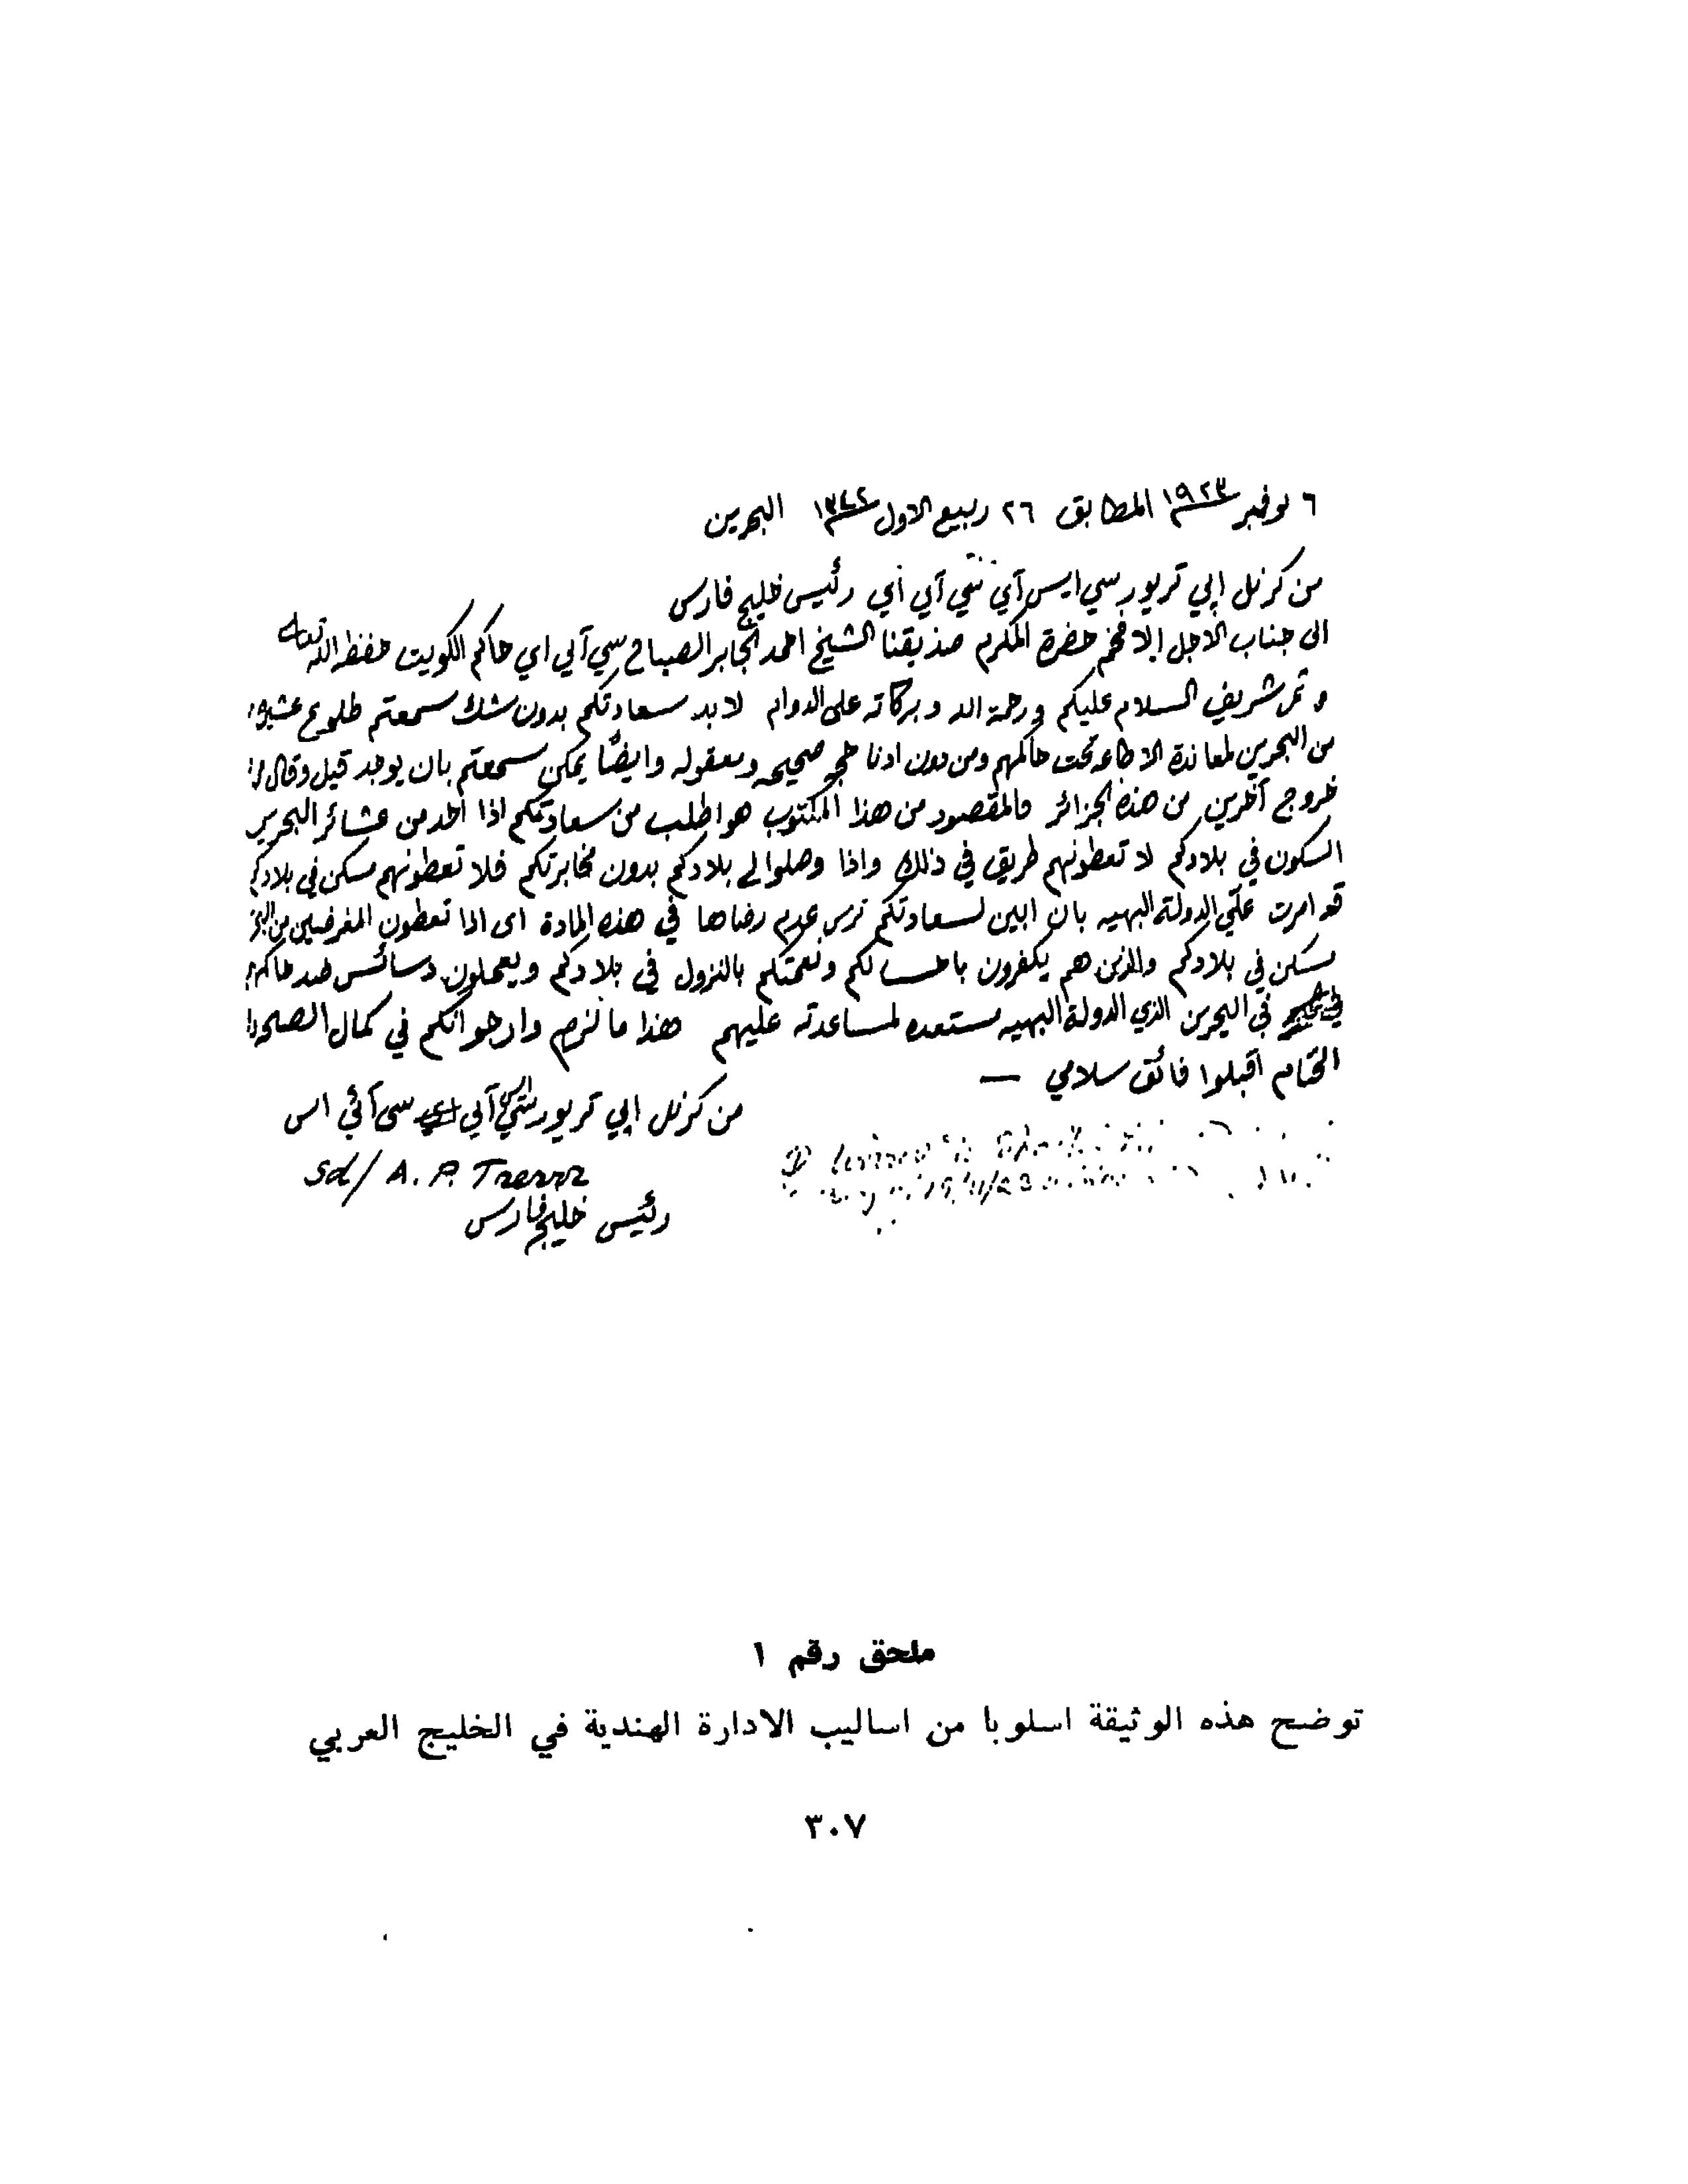 ٦ نوفمبر ١٩٢٣ المطابق ٢٦ ربيع الاول ١٣٤٢ البحرين
من كرنل اپي تريور سي ايس آي سي آي اي رئيس خليج فارس
الى جناب الاجل الافخم حضرة المكرم صديقنا الشيخ احمد الجابر الصباح سي آي اي حاكم الكويت حفظه الله تعالى
السلام عليكم ورحمة الله وبركاته على الدوام لا بد سعادتكم بدون شك سمعتم طلوع
من البحرين لمعاندة الاطاعه تحت حاكمهم ومن دون ادنا صحيحه ومعقوله وايضًا يمكن سمعتم بان يوجد قيل وقال
خروج آخرين من هذه الجزائر فالمقصود من هذا المكتوب هو اطلب من سعادتكم اذا احد من عشائر البحرين
السكون في بلادكم لا تعطونهم طريق في ذلك واذا وصلوا لى بلادكم بدون مخابرتكم فلا تعطونهم مسكن في بلادكم
قد امرت علي الدولة البهيه بان ابين لسعادتكم عدم رضاها في هذه المادة اى اذا تعطون المفرضين من
مسكن في بلادكم والذين هم يكفرون باحسانكم ونعمتكم بالنزول في بلادكم ويعملون دسائس ضد حاكمهم
في البحرين الذي الدولة البهيه مستعده لمساعدته عليهم هذا ما لزم وارجو انكم في كمال الصحه
الختام اقبلوا فائق سلامي —
من كرنل اپي تريور سي آي سي آئي اس
Sd/ A. P. Trevor
رئيس خليج فارس
ملحق رقم ١
توضح هذه الوثيقة اسلوبا من اساليب الادارة الهندية في الخليج العربي
٣٠٧